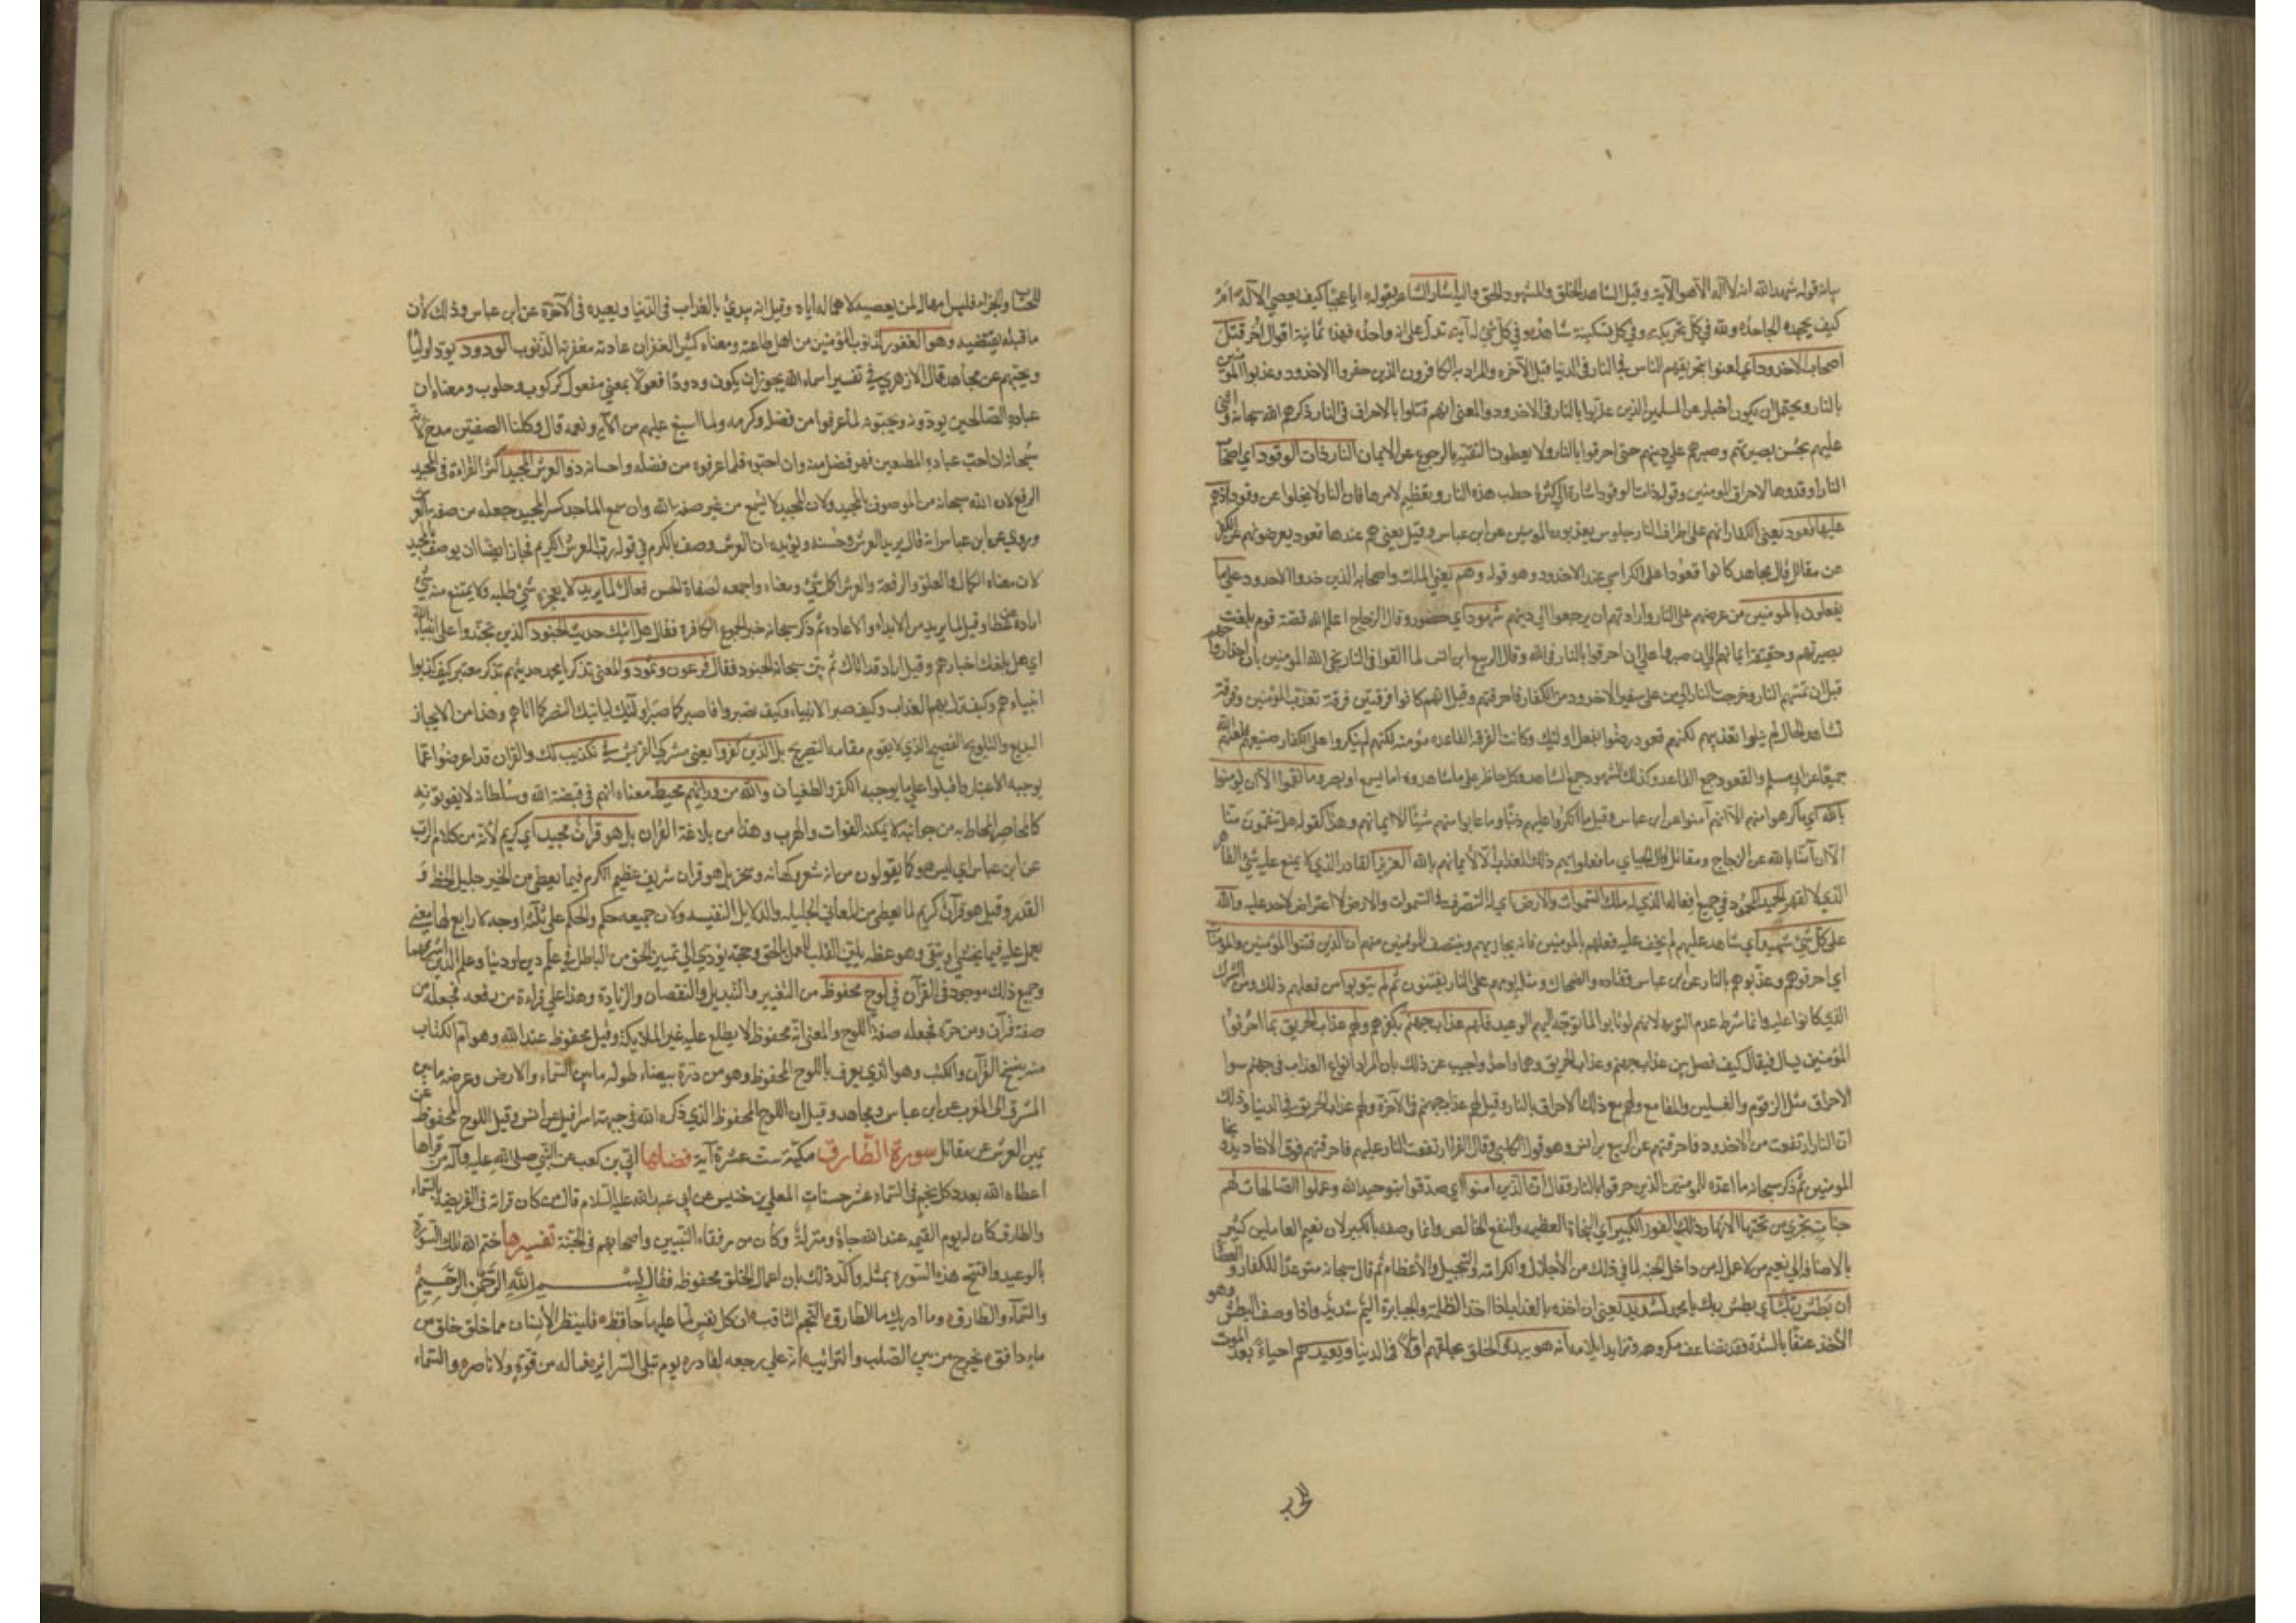 بيانه قوله شهد الله انه لا اله الا هو الآية وقيل الشاهد الخلق والمشهود الحق واليه اشار الشاعر بقوله ايا عجبا كيف يعصي الاله ام
كيف يجحده الجاحد ولله في كل تحريكة وفي كل تسكينة شاهد وفي كل شئ له آية تدل على انه واحد فهذه ثمانية اقوال أُخر قتل
اصحاب الاخدود اي لعنوا بتحريقهم الناس في النار في الدنيا قبل الآخرة والمراد به الكافرون الذين حفروا الاخدود وعذبوا المؤمنين
بالنار ويحتمل ان يكون اخبارا عن المسلمين الذين عذبوا بالنار في الاخدود والمعنى انهم قتلوا بالاحراق في النار ذكرهم الله سبحانه واثنى
عليهم بحسن بصيرتهم وصبرهم على دينهم حتى احرقوا بالنار ولا يعطون التقية بالرجوع عن الايمان النار ذات الوقود اي اصحاب
النار اوقدوها لاحراق المومنين وقوله ذات الوقود اشارة الى كثرة حطب هذه النار وتعظيم لامرها فان النار لا يخلوا عن وقود اذ هم
عليها قعود يعني الكفار اذ هم على اطراف النار جلوس يعذبون المومنين عن ابن عباس وقيل يعني هم عندها قعود يعرضونهم على الكفر
عن مقاتل قال مجاهد كانوا قعودا على الكراسي عند الاخدود وهو قوله وهم يعني الملك واصحابه الذين خدوا الاخدود على ما
يفعلون بالمومنين من عرضهم على النار وارادتهم ان يرجعوا الى دينهم شهود اي حضور وقال الزجاج اعلم الله قصة قوم بلغت
بصيرتهم وحقيقة ايمانهم الى ان صبروا على ان احرقوا بالنار في الله وقال الربيع ابن انس لما القوا في النار نجى الله المومنين بان اخذ ارواحهم
قبل ان تمسهم النار وخرجت النار الى من على شفير الاخدود من الكفار فاحرقتهم وقيل انهم كانوا فرقتين فرقة تعذب المؤمنين وفرقة
تشاهد الحال لم يتولوا تعذيبهم لكنهم قعود رضوا بفعل اولئك وكانت الفرقة القاعدة مؤمنة لكنهم لم ينكروا على الكفار صنيعهم فلعنهم الله
جميعا عن ابي مسلم والقعود جمع القاعد وكذلك الشهود جمع الشاهد وكل حاضر على ما شاهدوه اما بسمع او بصر وما نقموا الا ان يومنوا
بالله اي ما كرهوا منهم الا انهم آمنوا عن ابن عباس وقيل ما انكروا عليهم دينا وما عابوا منهم شيئا الا ايمانهم وهذا كقوله هل تنقمون منا
الا ان آمنا بالله عن الزجاج ومقاتل قال الجبائي ما فعلوا بهم ذلك العذاب الا لايمانهم بالله العزيز القادر الذي لا يمتنع عليه شئ القاهر
الذي لا يقهر الحميد المحمود في جميع افعاله الذي له ملك السموات والارض اي له التصرف في السموات والارض لا اعتراض لاحد عليه والله
على كل شئ شهيد اي شاهد عليهم لم يخف عليه فعلهم بالمومنين فانه يجازيهم وينتصف للمؤمنين منهم ان الذين فتنوا المؤمنين والمؤمنات
اي احرقوهم وعذبوهم بالنار عن ابن عباس وقتاده والضحاك ومثله يوم هم على النار يفتنون ثم لم يتوبوا من فعلهم ذلك ومن الشرك
الذي كانوا عليه وانما شرط عدم التوبه لانهم لو تابوا لما توجه اليهم الوعيد فلهم عذاب جهنم بكفرهم ولهم عذاب الحريق بما احرقوا
المؤمنين يسال فيقال كيف فصل بين عذاب جهنم وعذاب الحريق وهما واحد واجيب عن ذلك بان المراد انواع العذاب في جهنم سوا
الاحراق مثل الزقوم والغسلين والمقامع ولهم مع ذلك الاحراق بالنار وقيل لهم عذاب جهنم في الآخرة ولهم عذاب الحريق في الدنيا وذلك
ان النار ارتفعت من الاخدود فاحرقتهم عن الربيع بن انس وهو قول الكلبي وقال الفرا ارتفعت النار عليهم فاحرقتهم فوق الاخاديد ونجا
المومنين ثم ذكر سبحانه ما اعده للمومنين الذين حرقوا بالنار فقال ان الذين آمنوا اي صدقوا بتوحيد الله وعملوا الصالحات لهم
جنات تجري من تحتها الانهار ذلك الفوز الكبير اي النجاة العظيمه والنفع الخالص وانما وصفه بالكبير لان نعيم العاملين كبير
بالاضافه الى نعيم من لا عمل له من داخل الجنه لما في ذلك من الأجلال والاكرام والتبجيل والأعظام ثم قال سبحانه متوعدا للكفار والعصاة
ان بطش ربك اي بطش ربك يا محمد لشديد يعني ان اخذه بالعذاب اذا اخذ الظلمة والجبابرة اليم شديد واذا وصف البطش وهو
الأخذ عنفا بالشدة فقد تضاعف مكروهه وتزايد ايلامه انه هو يبدئ الخلق يخلقهم اولا في الدنيا ويعيدهم احياء بعد الموت
للحساب
للحساب والجزاء فليس امهاله لمن يعصيه لاهماله اياه وقيل انه يبدئ بالعذاب في الدنيا ويعيده في الآخرة عن ابن عباس وذلك لأن
ما قبله يقتضيه وهو الغفور لذنوب المؤمنين من اهل طاعته ومعناه كثير الغفران عادته مغفرته الذنوب الودود يود اولياءه
ويحبهم عن مجاهد قال الازهري في تفسير اسماء الله يجوز ان يكون ودودا فعولا بمعنى مفعول كركوب وحلوب ومعناه ان
عباده الصالحين يودونه ويحبونه لما عرفوا من فضله وكرمه ولما اسبغ عليهم من الآيه ونعمه قال وكلتا الصفتين مدح لانه
سبحانه ان احب عباده المطيعين فهو فضل منه وان احبوه فلما عرفوه من فضله واحسانه ذو العرش المجيد اكثر القراءة في المجيد
الرفع لان الله سبحانه من الموصوف بالمجيد ولان المجيد لا يسمع من غير صفة الله وان سمع الماجد كسر المجيد جعله من صفة العرش
وروي عن ابن عباس انه قال يريد العرش وحسنه ويؤيده ان العرش وصف بالكرم في قوله رب العرش الكريم فجاز ايضا ان يوصف بالمجيد
لان معناه الكمال والعلو والرفعة والعرش اكمل شئ ومعناه واجمعه لصفاة الحسن فعال لما يريد لا يعجزه شئ طلبه ولا يمتنع منه شئ
اراده عن عطا وقيل لما يريد من الابداء والاعاده ثم ذكر سبحانه خبر الجموع الكافرة فقال هل اتيك حديث الجنود الذين تجندوا على انبياء الله
اي هل بلغك اخبارهم وقيل اراد قد اتاك ثم بين سبحانه الجنود فقال فرعون وثمود والمعنى تذكر يا محمد حديثهم تذكر معتبر كيف كذبوا
انبياءهم وكيف نزل بهم العذاب وكيف صبر الانبياء وكيف نصروا فاصبر كما صبر اولئك لياتيك النصر كما اتاهم وهذا من الايجاز
البديع والتلويح الفصيح الذي لا يقوم مقامه التصريح بل الذين كفروا يعني مشركي القريش في تكذيب لك والقران قد اعرضوا عما
يوجبه الاعتبار واقبلوا على ما يوجبه الكفر والطغيان والله من ورائهم محيط معناه انهم في قبضة الله وسلطانه لا يفوتونه
كالمحاصر المحاط به من جوانبه لا يمكنه الفوات والهرب وهذا من بلاغة القران بل هو قرآن مجيد اي كريم لأنه من كلام الرب
عن ابن عباس اي ليس هو كما يقولون من انه شعر وكهانه وسحر بل هو قران شريف عظيم الكرم فيما يعطي من الخير جليل الخطر و
القدر وقيل هو قرآن كريم لما يعطي من المعاني الجليله والدلايل النفيسه ولان جميعه حكم والحكم على ثلثة اوجه لا رابع لها معنى
يعمل عليه فيما يخشى او يتقى وهو عظه يلين القلب للعمل بالحق وحجة يؤدي الى تمييز الحق من الباطل في علم دين او دنيا وعلم الدين اشرفهما
وجميع ذلك موجود في القرآن في لوح محفوظ من التغيير والتبديل والنقصان والزيادة وهذا على قراءة من رفعه فجعله من
صفة قرآن ومن جره فجعله صفة اللوح والمعنى انه محفوظ لا يطلع عليه غير الملايكة وقيل محفوظ عند الله وهو ام الكتاب
منه ينسخ القرآن والكتب وهو الذي يعرف باللوح المحفوظ وهو من درة بيضاء طوله ما بين السماء والارض وعرضه ما بين
المشرق الى المغرب عن ابن عباس ومجاهد وقيل ان اللوح المحفوظ الذي ذكره الله في جبهة اسرافيل عن انس وقيل اللوح المحفوظ عن
يمين العرش عن مقاتل سورة الطارق مكية ست عشرة آية فضلها ابي بن كعب عن النبي صلى الله عليه وآله من قراها
اعطاه الله بعدد كل نجم في السماء عشر حسنات المعلى بن خنيس عن ابي عبد الله عليه السلام قال من كان قراته في الفريضه بالسماء
والطارق كان له يوم القيمه عند الله جاه ومنزلة وكان من رفقاء النبيين واصحابهم في الجنة تفسيرها ختم الله تلك السورة
بالوعيد وافتتح هذه السوره بمثله واكد ذلك بان اعمال الخلق محفوظه فقال بسم الله الرحمن الرحيم
والسماء والطارق وما ادريك ما الطارق النجم الثاقب ان كل نفس لما عليها حافظ فلينظر الأنسان مما خلق خلق من
ماء دافق يخرج من بين الصلب والترائب انه على رجعه لقادر يوم تبلى السرائر فما له من قوة ولا ناصر والسماء